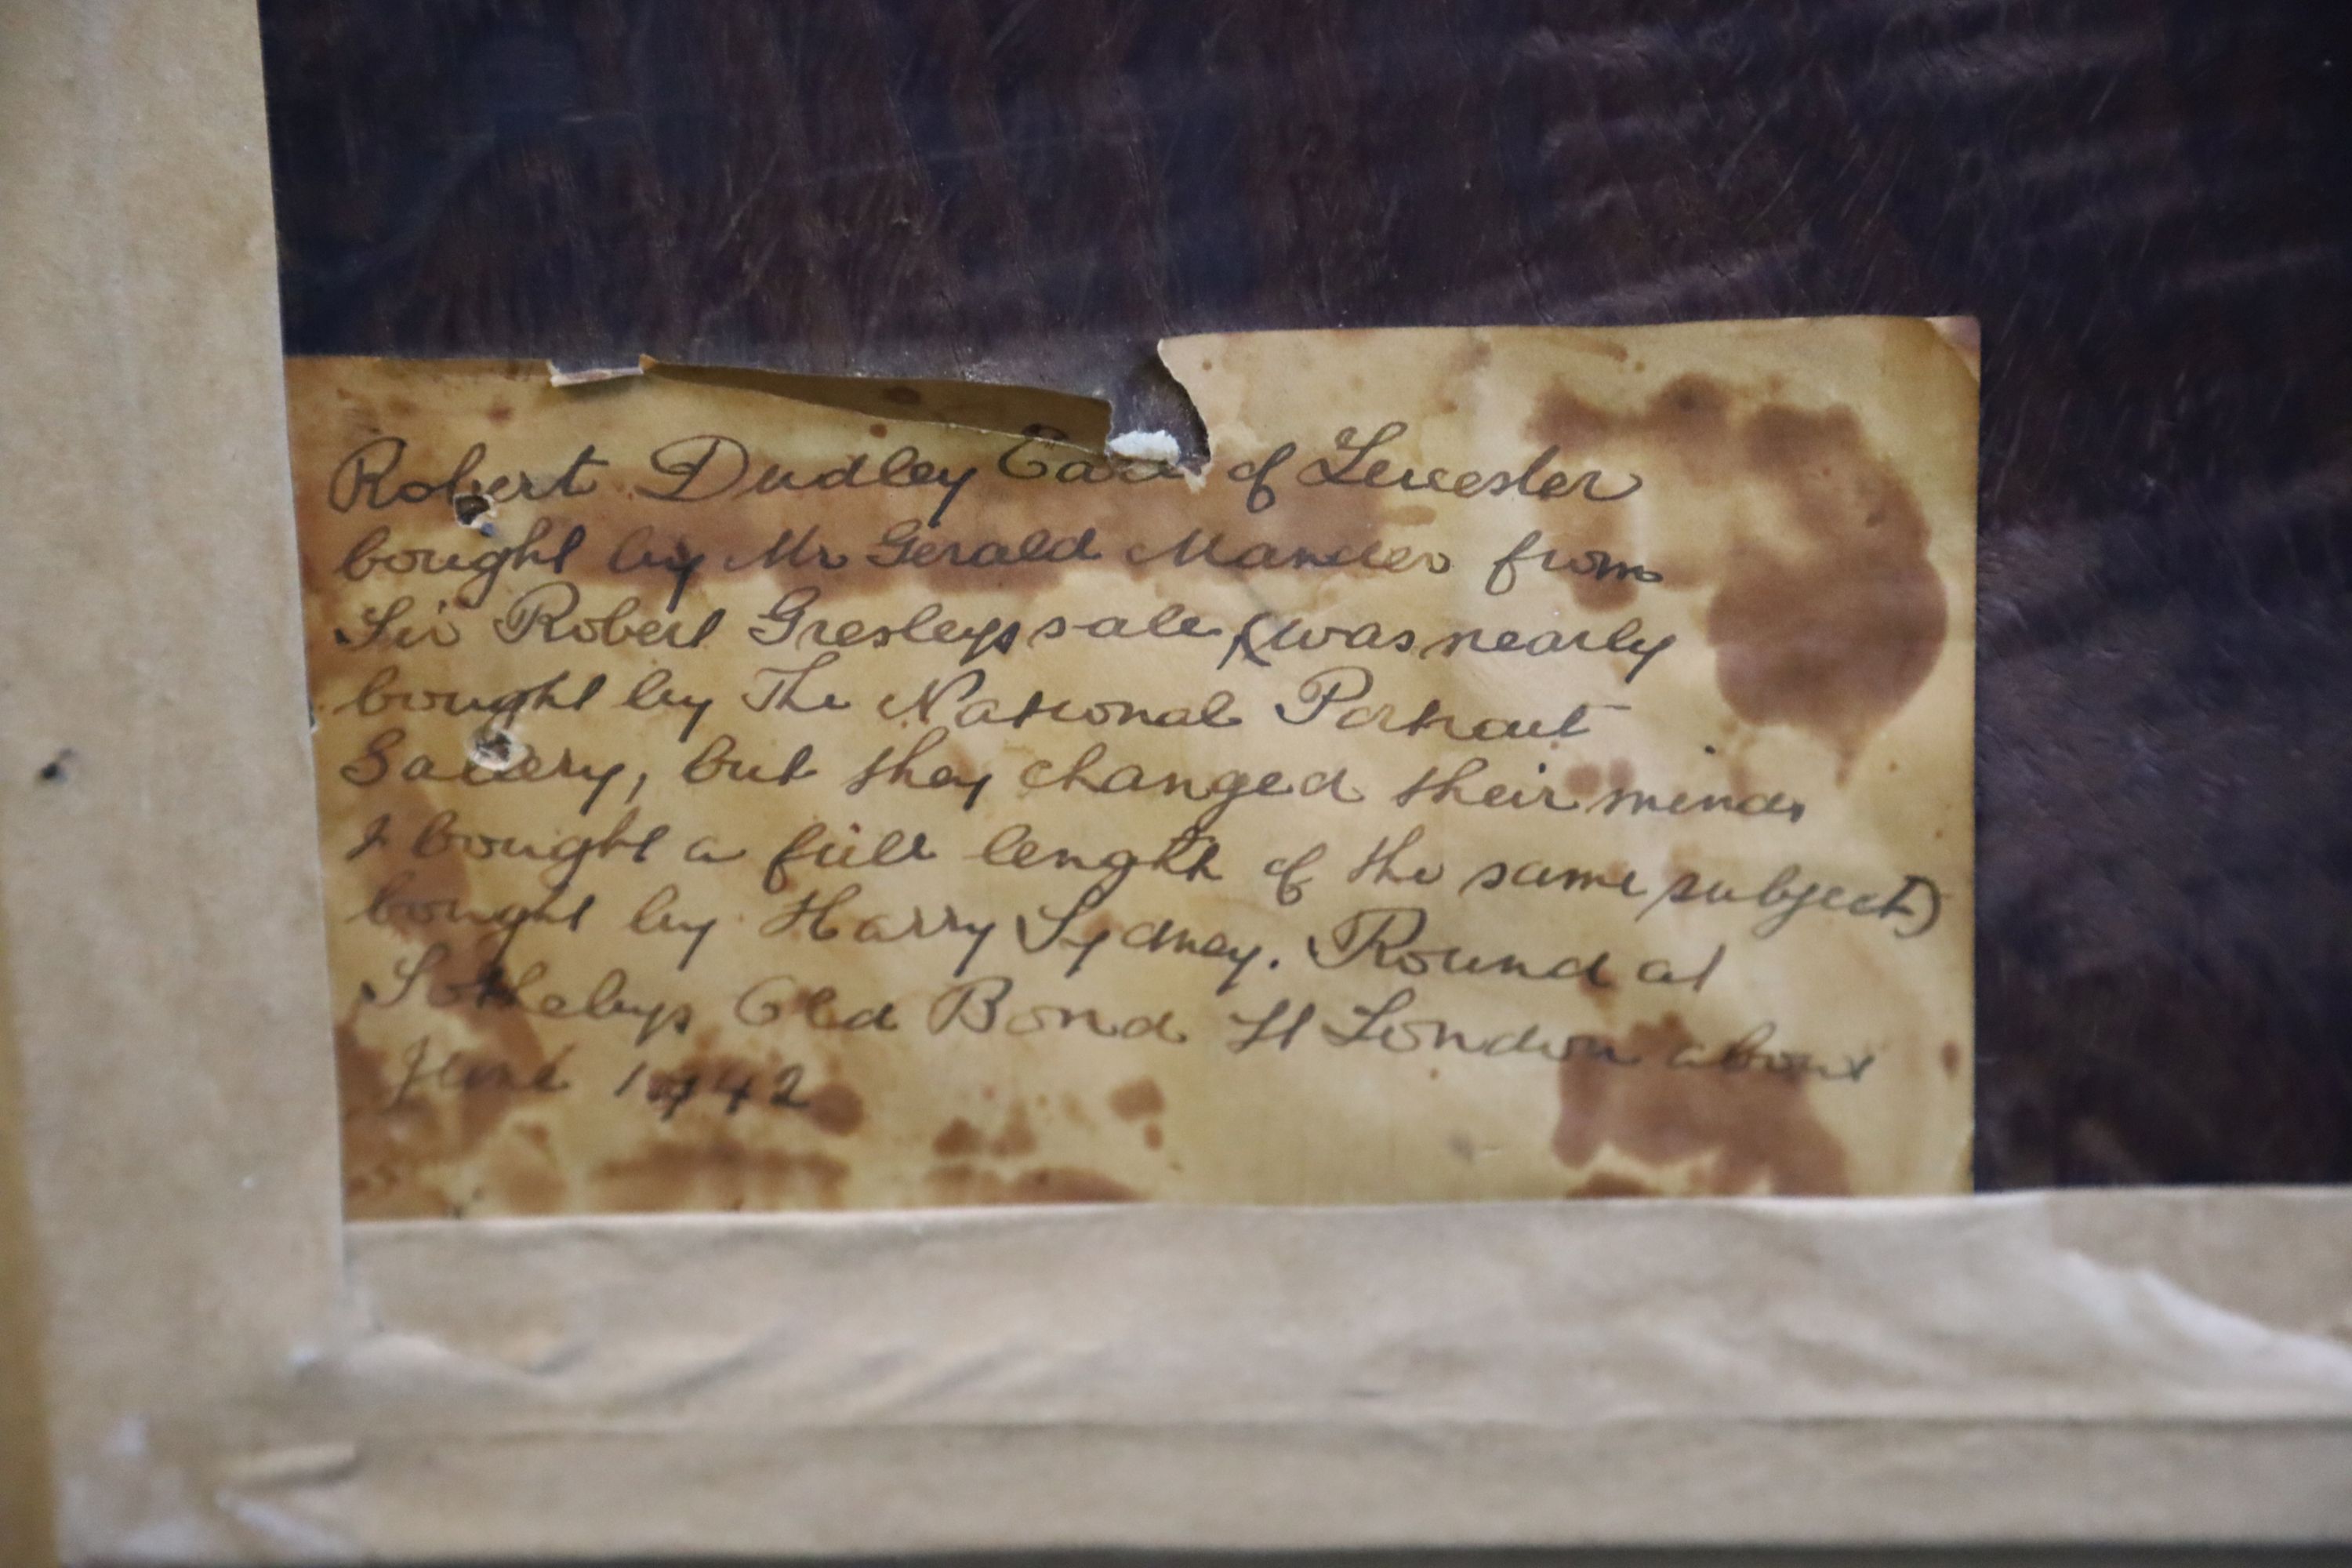 Robert Dudley Earl of Leicester
bought by Mr Gerald Mander from
Sir Robert Gresleys sale (was nearly
bought by The National Portrait
Gallery, but they changed their minds
& bought a full length of the same subject)
bought by Harry Sydney. Round at
Sothebys Old Bond St London about
June 1942